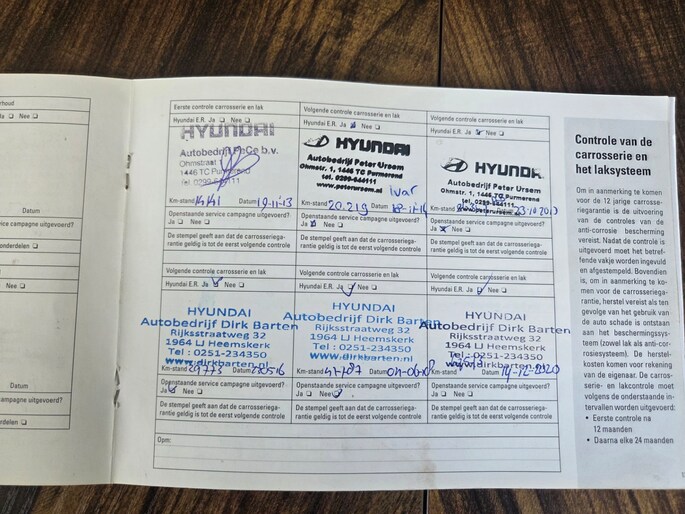 rhoud
Ja ❑ Nee ❑
Datum
service campagne uitgevoerd?
onderdelen ❑
Datum
campagne uitgevoerd?
derdelen ❑
Eerste controle carrosserie en lak
Hyundai E.R. Ja ❑ Nee ❑
HYUNDAI
Autobedrijf PeGe b.v.
Ohmstraat 1
1446 TC Purmerend
tel. 0299-644111
Km-stand Datum 19-11-13
Openstaande service campagne uitgevoerd?
Ja ❑ Nee ❑
De stempel geeft aan dat de carrosseriega-
rantie geldig is tot de eerst volgende controle
Volgende controle carrosserie en lak
Hyundai E.R. Ja ❑ Nee ❑
HYUNDAI
Autobedrijf Peter Ursem
Ohmstr. 1, 1446 TC Purmerend
tel. 0299-644111
www.peterursem.nl
Ivar
Km-stand 20.219 Datum
Openstaande service campagne uitgevoerd?
Ja ❑ Nee ❑
De stempel geeft aan dat de carrosseriega-
rantie geldig is tot de eerst volgende controle
Volgende controle carrosserie en lak
Hyundai E.R. Ja ❑ Nee ❑
HYUNDAI
Autobedrijf Peter Ursem
Ohmstr. 1, 1446 TC Purmerend
tel. 0299-644111
www.peterursem.nl
Km-stand
Openstaande service campagne uitgevoerd?
Ja ❑ Nee ❑
De stempel geeft aan dat de carrosseriega-
rantie geldig is tot de eerst volgende controle
Volgende controle carrosserie en lak
Hyundai E.R. Ja ❑ Nee ❑
HYUNDAI
Autobedrijf Dirk Barten
Rijksstraatweg 32
1964 LJ Heemskerk
Tel : 0251-234350
www.dirkbarten.nl
Km-stand 29773 Datum
Openstaande service campagne uitgevoerd?
Ja ❑ Nee ❑
De stempel geeft aan dat de carrosseriega-
rantie geldig is tot de eerst volgende controle
Volgende controle carrosserie en lak
Hyundai E.R. Ja ❑ Nee ❑
HYUNDAI
Autobedrijf Dirk Barten
Rijksstraatweg 32
1964 LJ Heemskerk
Tel : 0251-234350
www.dirkbarten.nl
Km-stand Datum 04-06-18
Openstaande service campagne uitgevoerd?
Ja ❑ Nee ❑
De stempel geeft aan dat de carrosseriega-
rantie geldig is tot de eerst volgende controle
Volgende controle carrosserie en lak
Hyundai E.R. Ja ❑ Nee ❑
HYUNDAI
Autobedrijf Dirk Barten
Rijksstraatweg 32
1964 LJ Heemskerk
Tel : 0251-234350
www.dirkbarten.nl
Km-stand Datum 14-12-2020
Openstaande service campagne uitgevoerd?
Ja ❑ Nee ❑
De stempel geeft aan dat de carrosseriega-
rantie geldig is tot de eerst volgende controle
Opm:
Controle van de
carrosserie en
het laksysteem
Om in aanmerking te komen
voor de 12 jarige carrosse-
riegarantie is de uitvoering
van de controles van de
anti-corrosie bescherming
vereist. Nadat de controle is
uitgevoerd moet het betref-
fende vakje worden ingevuld
en afgestempeld. Bovendien
is, om in aanmerking te ko-
men voor de carrosseriega-
rantie, herstel vereist als ten
gevolge van het gebruik van
de auto schade is ontstaan
aan het beschermingssys-
teem (zowel lak als anti-cor-
rosiesysteem). De herstel-
kosten komen voor rekening
van de eigenaar. De carros-
serie- en lakcontrole moet
volgens de onderstaande in-
tervallen worden uitgevoerd:
• Eerste controle na
12 maanden
• Daarna elke 24 maanden